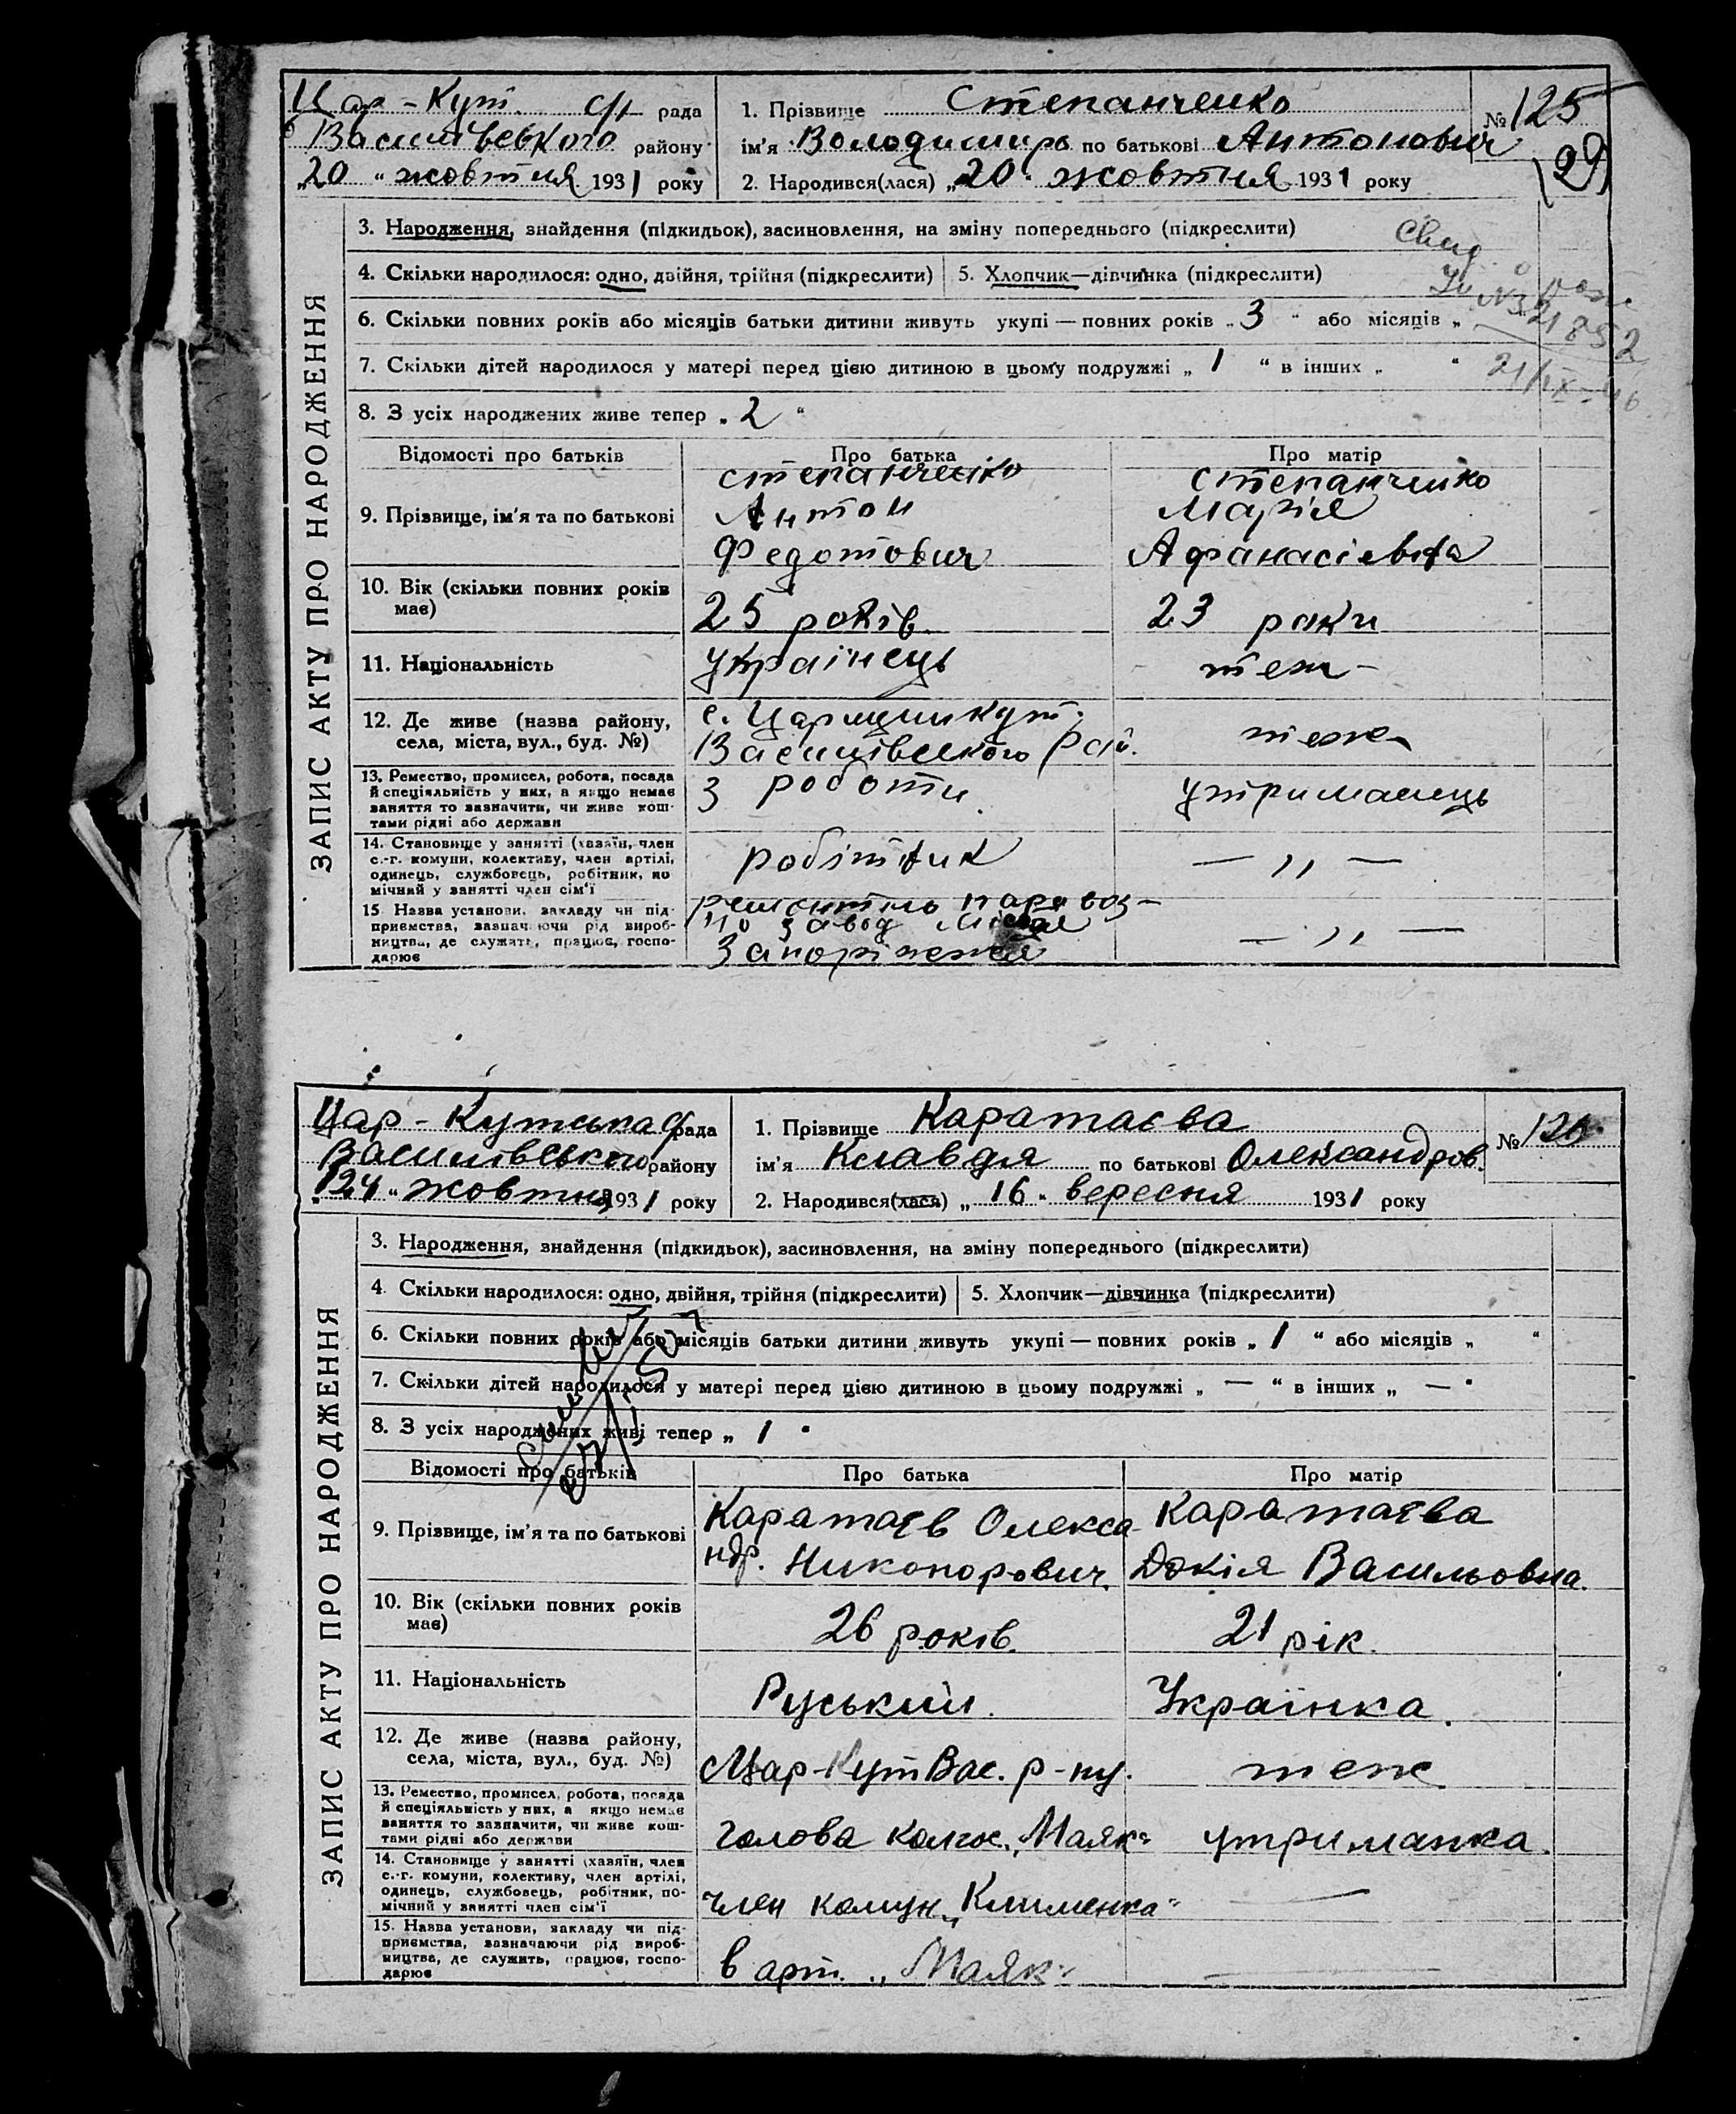 Цар-Кут. с/г рада
Василівського району
„20“ жовтня 1931 року
1. Прізвище Степанченко
ім'я Володимирь по батькові Антонович
2. Народився(лася) „20“ жовтня 1931 року
№ 125
29
ЗАПИС АКТУ ПРО НАРОДЖЕННЯ
3. Народження, знайдення (підкидьок), засиновлення, на зміну попереднього (підкреслити)
4. Скільки народилося: одно, двійня, трійня (підкреслити)
5. Хлопчик—дівчинка (підкреслити)
6. Скільки повних років або місяців батьки дитини живуть укупі — повних років „3“ або місяців „
7. Скільки дітей народилося у матері перед цією дитиною в цьому подружжі „1“ в інших „ “
21/IX-46
8. З усіх народжених живе тепер „2“
Відомості про батьків
Про батька
Про матір
9. Прізвище, ім'я та по батькові
степанченко
Антон
Федотович
степанченко
Марія
Афанасіевна
10. Вік (скільки повних років має)
25 років
23 роки
11. Національність
Українець
- теж -
12. Де живе (назва району, села, міста, вул., буд. №)
с. Царицинкут.
Василівського рай.
теж
13. Ремество, промисел, робота, посада
й спеціяльність у них, а якщо немає
заняття то зазначити, чи живе кош-
тами рідні або держави
З роботи
утриманець
14. Становище у занятті (хазяїн, член
с.-г. комуни, колективу, член артілі,
одинець, службовець, робітник, по
мічний у занятті член сім'ї
робітник
— „ —
15 Назва установи, закладу чи під-
приємства, зазначаючи рід вироб-
ництва, де служить, працює, госпо-
дарює
паравоз-
но завод
Запоріжжя
— „ —
Цар-Кутська с/рада
Василівського району
„24“ жовтня 1931 року
1. Прізвище Каратаєва
ім'я Клавдія по батькові Олександров.
2. Народився(лася) „16“ вересня 1931 року
№ 126
ЗАПИС АКТУ ПРО НАРОДЖЕННЯ
3. Народження, знайдення (підкидьок), засиновлення, на зміну попереднього (підкреслити)
4. Скільки народилося: одно, двійня, трійня (підкреслити)
5. Хлопчик—дівчинка (підкреслити)
6. Скільки повних років або місяців батьки дитини живуть укупі — повних років „1“ або місяців „ “
7. Скільки дітей народилося у матері перед цією дитиною в цьому подружжі „—“ в інших „—“
8. З усіх народжених живі тепер „1“
Відомості про батьків
Про батька
Про матір
9. Прізвище, ім'я та по батькові
Каратаєв Олекса
ндр. Никонорович.
Каратаєва
Докія Васильовна.
10. Вік (скільки повних років має)
26 років.
21 рік.
11. Національність
Руський.
Українка.
12. Де живе (назва району, села, міста, вул., буд. №)
Цар-Кут Вас. р-ну.
теж
13. Ремество, промисел, робота, посада
й спеціяльність у них, а якщо немає
заняття то зазначити, чи живе кош-
тами рідні або держави
голова колгос. „Маяк“
утриманка.
14. Становище у занятті (хазяїн, член
с.-г. комуни, колективу, член артілі,
одинець, службовець, робітник, по-
мічний у занятті член сім'ї
член комун. „Клименка“
—
15. Назва установи, закладу чи під-
приємства, зазначаючи рід вироб-
ництва, де служить, працює, госпо-
дарює
в арт. „Маяк“
—